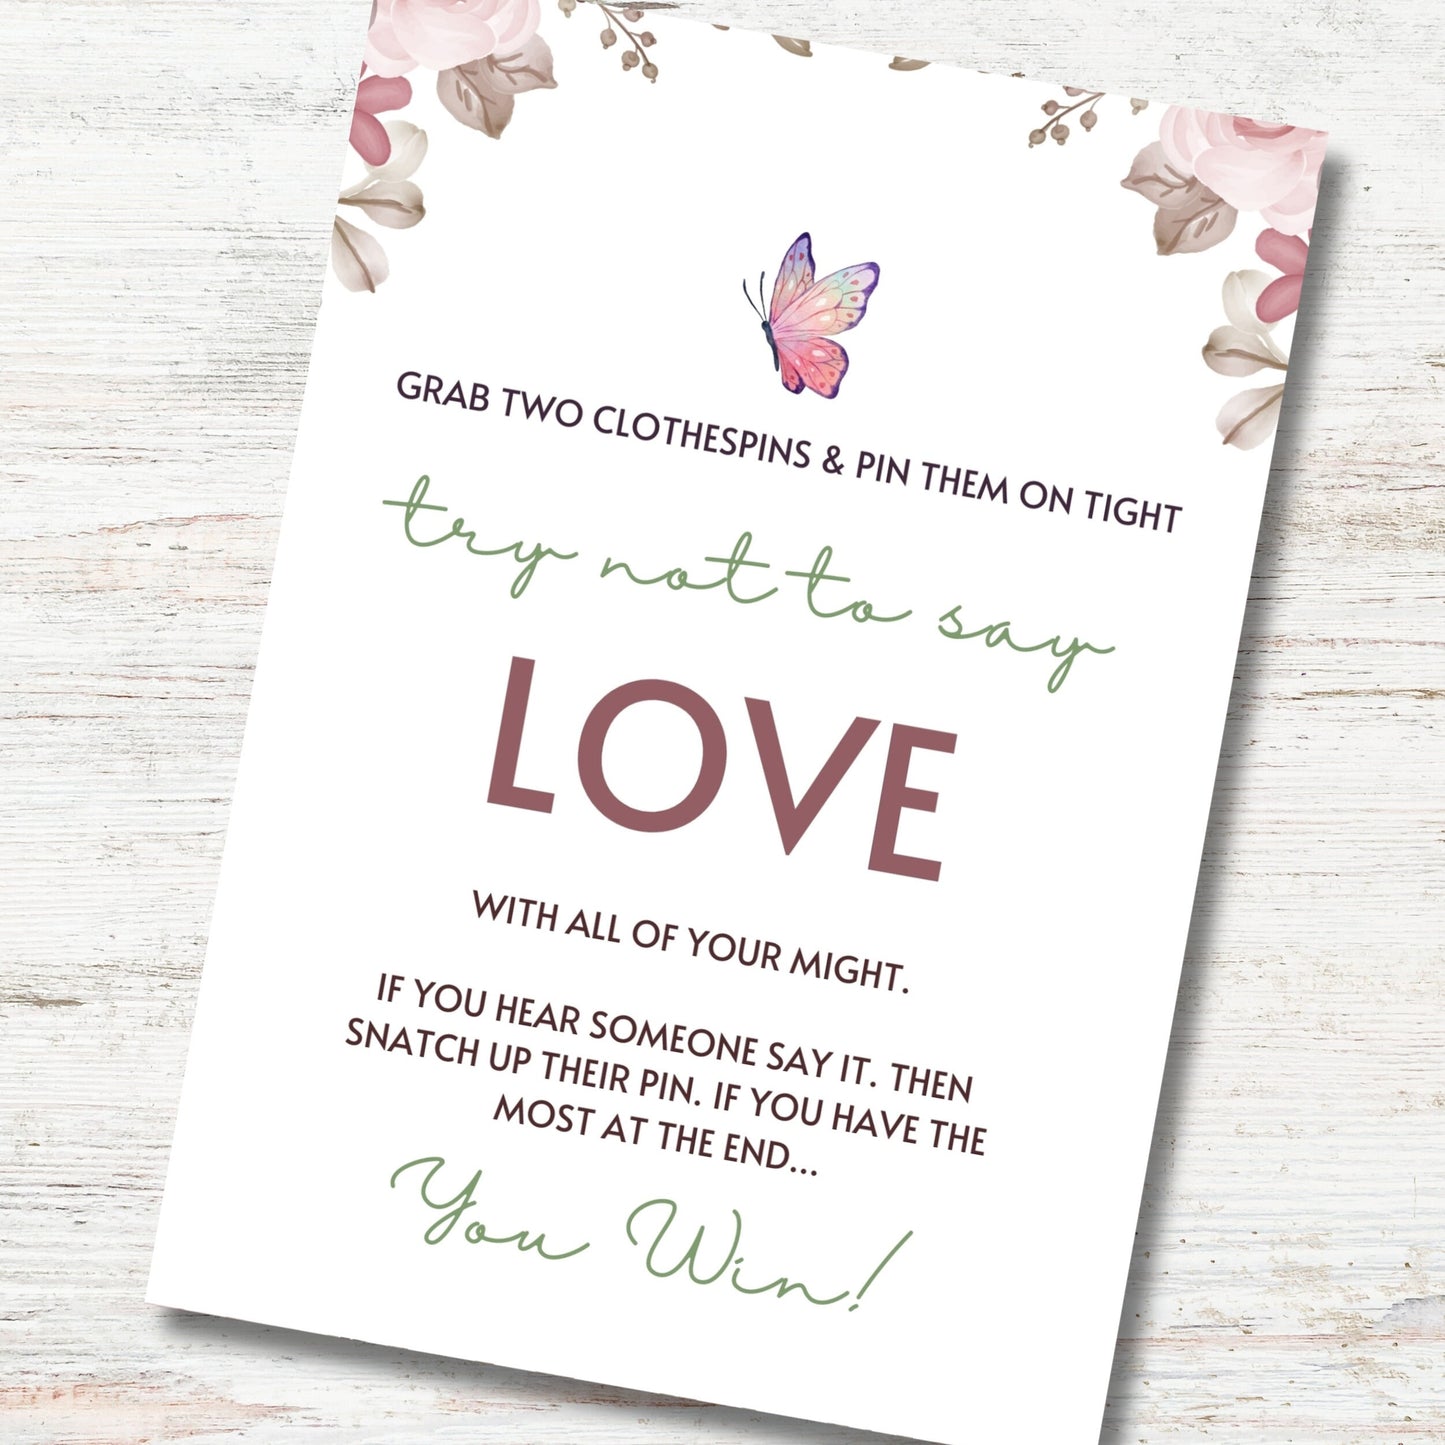 GRAB TWO CLOTHESPINS & PIN THEM ON TIGHT
try not to say
LOVE
WITH ALL OF YOUR MIGHT.
IF YOU HEAR SOMEONE SAY IT. THEN
SNATCH UP THEIR PIN. IF YOU HAVE THE
MOST AT THE END...
You Win!